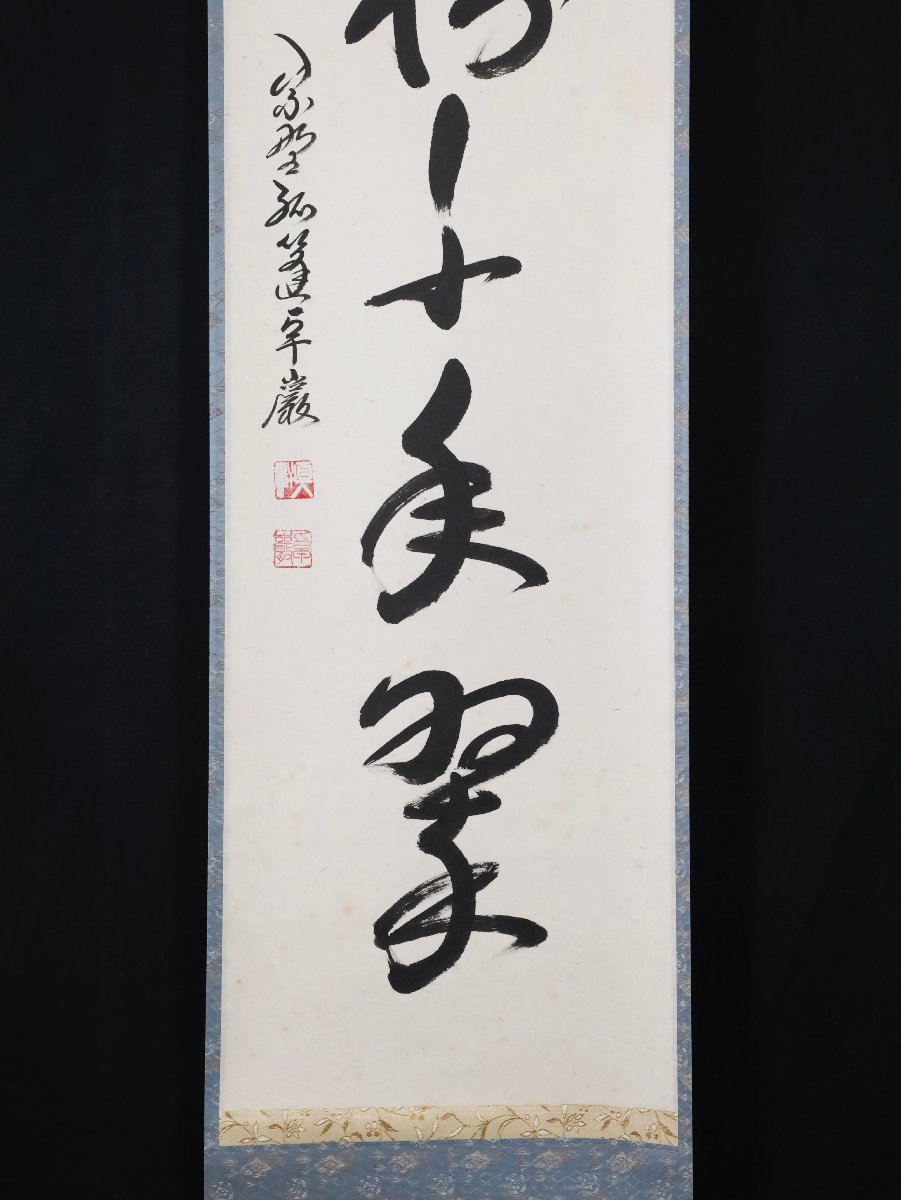 千年翠
紫野孤篷卓巌